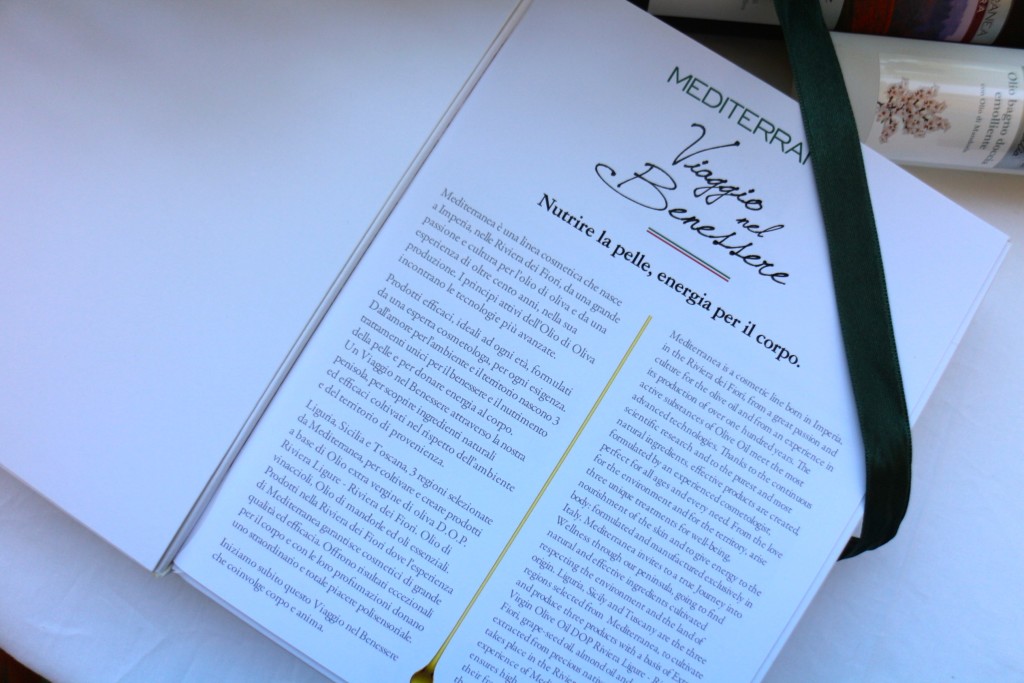 MEDITERRA
Viaggio
nel
Benessere
Nutrire la pelle, energia per il corpo.
Mediterranea è una linea cosmetica che nasce
a Imperia, nelle Riviera dei Fiori, da una grande
passione e cultura per l'olio di oliva e da una
esperienza di oltre cento anni, nella sua
produzione. I principi attivi dell'Olio di Oliva
incontrano le tecnologie più avanzate.
Prodotti efficaci, ideali ad ogni età, formulati
da una esperta cosmetologa, per ogni esigenza.
Dall'amore per l'ambiente e il territorio nascono 3
trattamenti unici per il benessere e il nutrimento
della pelle e per donare energia al corpo.
Un Viaggio nel Benessere attraverso la nostra
penisola, per scoprire ingredienti naturali
ed efficaci coltivati nel rispetto dell'ambiente
e del territorio di provenienza.
Liguria, Sicilia e Toscana, 3 regioni selezionate
da Mediterranea, per coltivare e creare prodotti
a base di Olio extra vergine di oliva D.O.P.
Riviera Ligure - Riviera dei Fiori, Olio di
vinaccioli, Olio di mandorle ed oli essenziali.
Prodotti nella Riviera dei Fiori dove l'esperienza
di Mediterranea garantisce cosmetici di grande
qualità ed efficacia. Offrono risultati eccezionali
per il corpo e con le loro profumazioni donano
uno straordinario e totale piacere polisensoriale.
Iniziamo subito questo Viaggio nel Benessere
che coinvolge corpo e anima.
Mediterranea is a cosmetic line born in Imperia,
in the Riviera dei Fiori, from a great passion and
culture for the olive oil and from an experience in
its production of over one hundred years. The
active substances of Olive Oil meet the most
advanced technologies. Thanks to the continuous
scientific research and to the purest and most
natural ingredients, effective products are created,
formulated by an experienced cosmetologist,
perfect for all ages and every need. From the love
for the environment and for the territory, arise
three unique treatments for well-being,
nourishment of the skin and to give energy to the
body, formulated and manufactured exclusively in
Italy. Mediterranea invites to a true Journey into
Wellness through our peninsula, going to find
natural and effective ingredients cultivated
respecting the environment and the land of
origin. Liguria, Sicily and Tuscany are the three
regions selected from Mediterranea, to cultivate
and produce three products with a basis of Extra
Virgin Olive Oil DOP Riviera Ligure - Ri
Fiori, grape-seed oil, almond oil and
extracted from precious nati
takes place in the Riviera
experience of Med
ensures high
their fr
ANEA
Olio bagno doccia
emolliente
con Olio di Mandorle